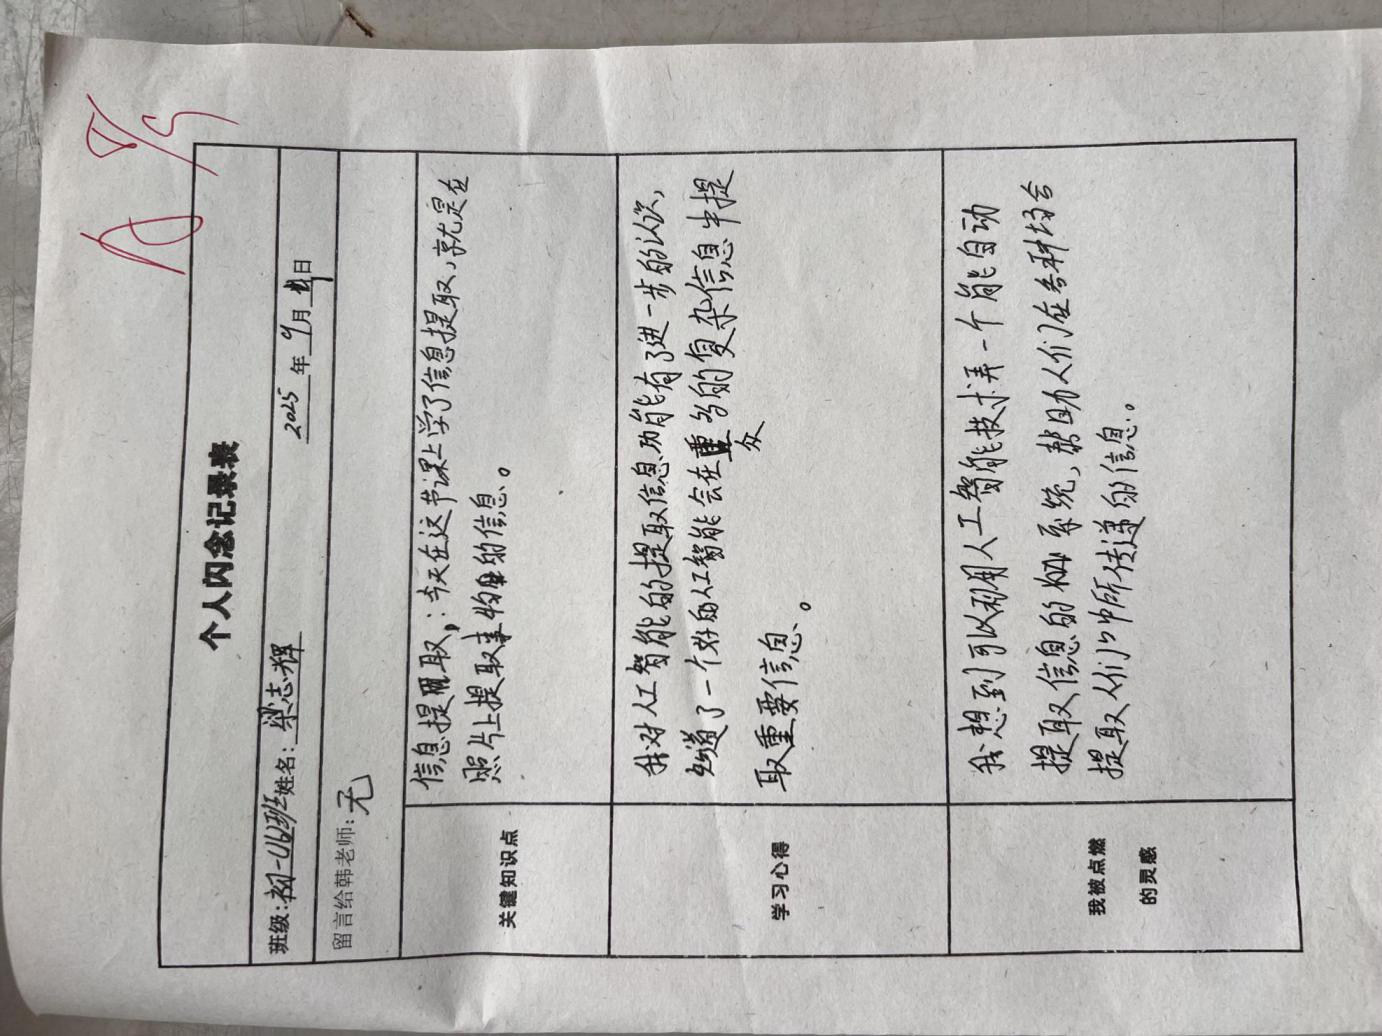 个人闪念记录表
班级:初一U6班姓名:梁志辉 2025年9月日
留言给韩老师:无
关键知识点
信息提取:今天在这节课上学了信息提取,就是在
照片上提取物的信息。
学习心得
我对人工智能的提取信息功能有了进一步的认识,
知道了一个好的人工智能会在众多的复杂信息中提
取重要信息。
我被点燃
的灵感
我想到可以利用人工智能技术弄一个能自动
提取信息的系统,帮助人们在各种场合
提取人们口中所传递的信息。